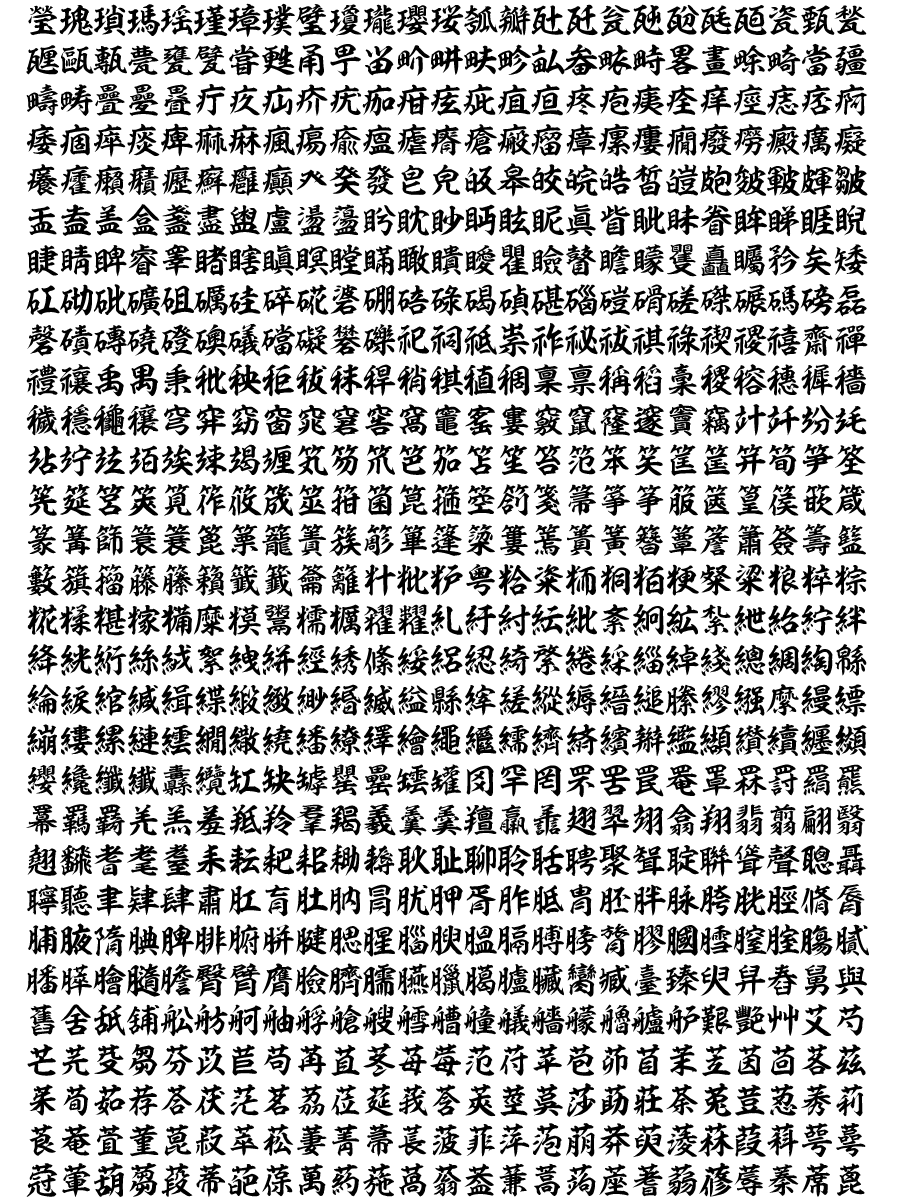 瑩瑰瑣瑪瑶瑾璋璞璧瓊瓏瓔珱瓠瓣瓧瓩瓮瓲瓰瓱瓸瓷甄甃
甅甌甎甍甕甓甞甦甬甼畄畍畊畉畛畆畚畩畤畧畫畭畸當疆
疇畴疊疉疂疔疚疝疥疣痂疳痃疵疽疸疼疱痍痊痒痙痣痞痾
痿痼瘁痰痺痲痳瘋瘍瘉瘟瘧瘠瘡瘢瘤瘴瘰瘻癇癈癆癜癘癡
癢癨癩癪癧癬癰癲癶癸發皀皃皈皋皎皖皓皙皚皰皴皸皹皺
盂盍盖盒盞盡盥盧盪蘯盻眈眇眄眩眤眞眥眦眛眷眸睇睚睨
睫睛睥睿睾睹瞎瞋瞑瞠瞞瞰瞶瞹瞿瞼瞽瞻矇矍矗矚矜矣矮
矼砌砒礦砠礪硅碎硴碆硼碚碌碣碵碪碯磑磆磋磔碾碼磅磊
磬磧磚磽磴礇礒礑礙礬礫祀祠祗祟祚祕祓祺祿禊禝禧齋禪
禮禳禹禺秉秕秧秬秡秣稈稍稘稙稠稟禀稱稻稾稷穃穗穉穡
穢穩龝穰穹穽窈窗窕窘窖窩竈窰窶竅竄窿邃竇竊竍竏竕竓
站竚竝竡竢竦竭竰笂笏笊笆笳笘笙笞笵笨笶筐筺笄筍笋筌
筅筵筥筴筧筰筱筬筮箝箘箟箍箜箚箋箒箏筝箙篋篁篌篏箴
篆篝篩簑簔篦篥籠簀簇簓篳篷簗簍篶簣簧簪簟簷簫簽籌籃
籔籏籀籐籘籟籤籖籥籬籵粃粐粤粭粢粫粡粨粳粲粱粮粹粽
糀糅糂糘糒糜糢鬻糯糲糴糶糺紆紂紜紕紊絅絋紮紲紿紵絆
絳絖絎絲絨絮絏絣經綉絛綏絽綛綺綮綣綵緇綽綫總綢綯緜
綸綟綰緘緝緤緞緻緲緡縅縊縣縡縒縱縟縉縋縢繆繦縻縵縹
繃縷縲縺繧繝繖繞繙繚繹繪繩繼繻纃緕繽辮繿纈纉續纒纐
纓纔纖纎纛纜缸缺罅罌罍罎罐网罕罔罘罟罠罨罩罧罸羂羆
羃羈羇羌羔羞羝羚羣羯羲羹羮羶羸譱翅翆翊翕翔翡翦翩翳
翹飜耆耄耋耒耘耙耜耡耨耿耻聊聆聒聘聚聟聢聨聳聲聰聶
聹聽聿肄肆肅肛肓肚肭冐肬胛胥胙胝冑胚胖脉胯胱脛脩脣
脯腋隋腆脾腓腑胼腱腮腥腦腴膃膈膊膀膂膠膕膤膣腟膓膩
膰膵膾膸膽臀臂膺臉臍臑臙臘臈臚臟臠臧臺臻臾舁舂舅與
舊舍舐舖舩舫舸舳艀艙艘艝艚艟艤艢艨艪艫舮艱艷艸艾芍
芒芫芟芻芬苡苣苟苒苴苳苺莓范苻苹苞茆苜茉苙茵茴茖茲
茱荀茹荐荅茯茫茗茘莅莚莪莟莢莖茣莎莇莊荼莵荳荵莠莉
莨菴萓菫菎菽萃菘萋菁菷萇菠菲萍萢萠莽萸蔆菻葭萪萼蕚
蒄葷葫蒭葮蒂葩葆萬葯葹萵蓊葢蒹蒿蒟蓙蓍蒻蓚蓐蓁蓆蓖